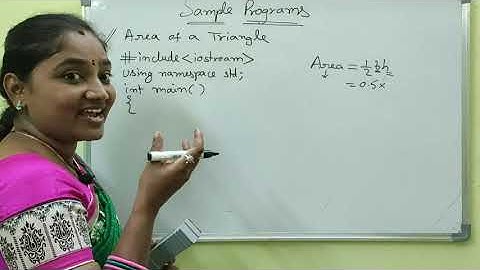 Sample Programs
Area of a Triangle
#include<iostream>
using namespace std;
int main()
{
Area = 1/2 b h
= 0.5 x